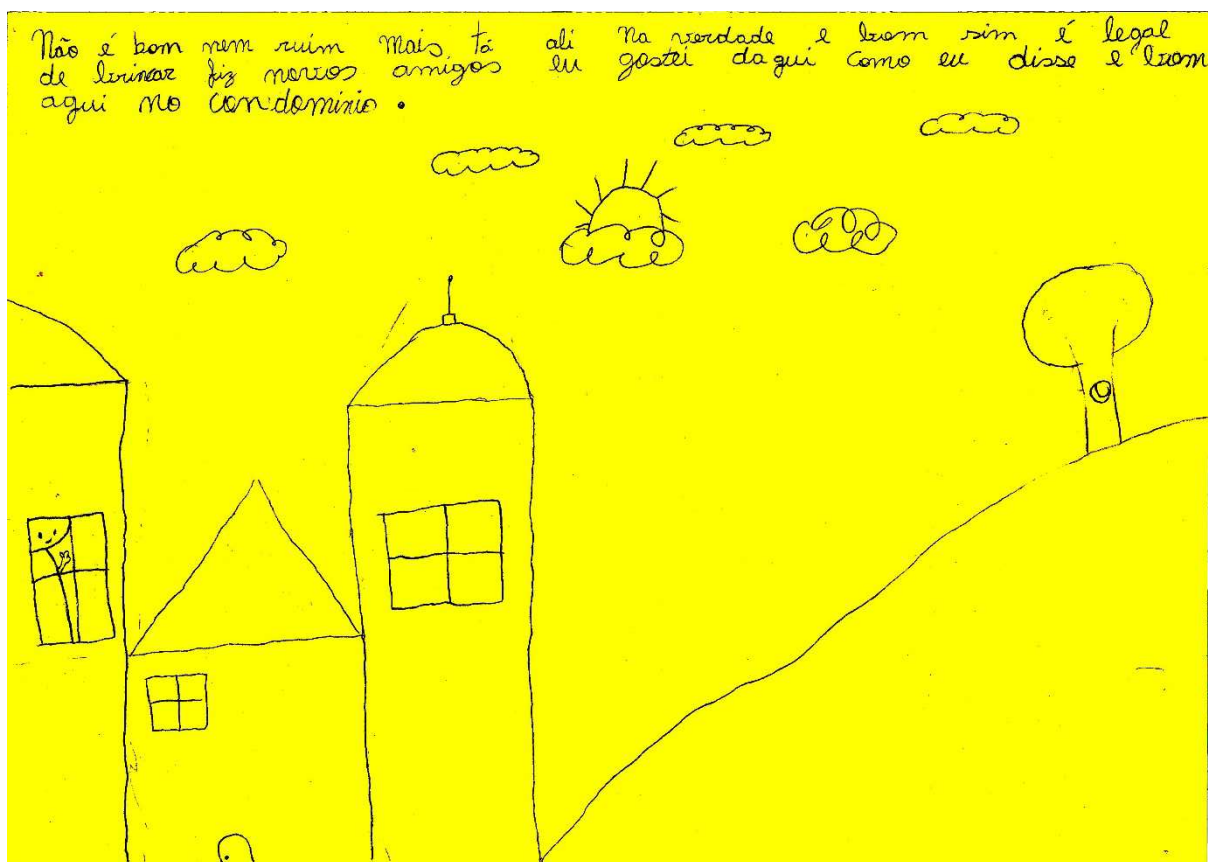 Não é bom nem ruim mais tá ali na verdade e bom sim é legal
de brincar fiz novos amigos eu gostei daqui como eu disse e bom
aqui no condomínio.